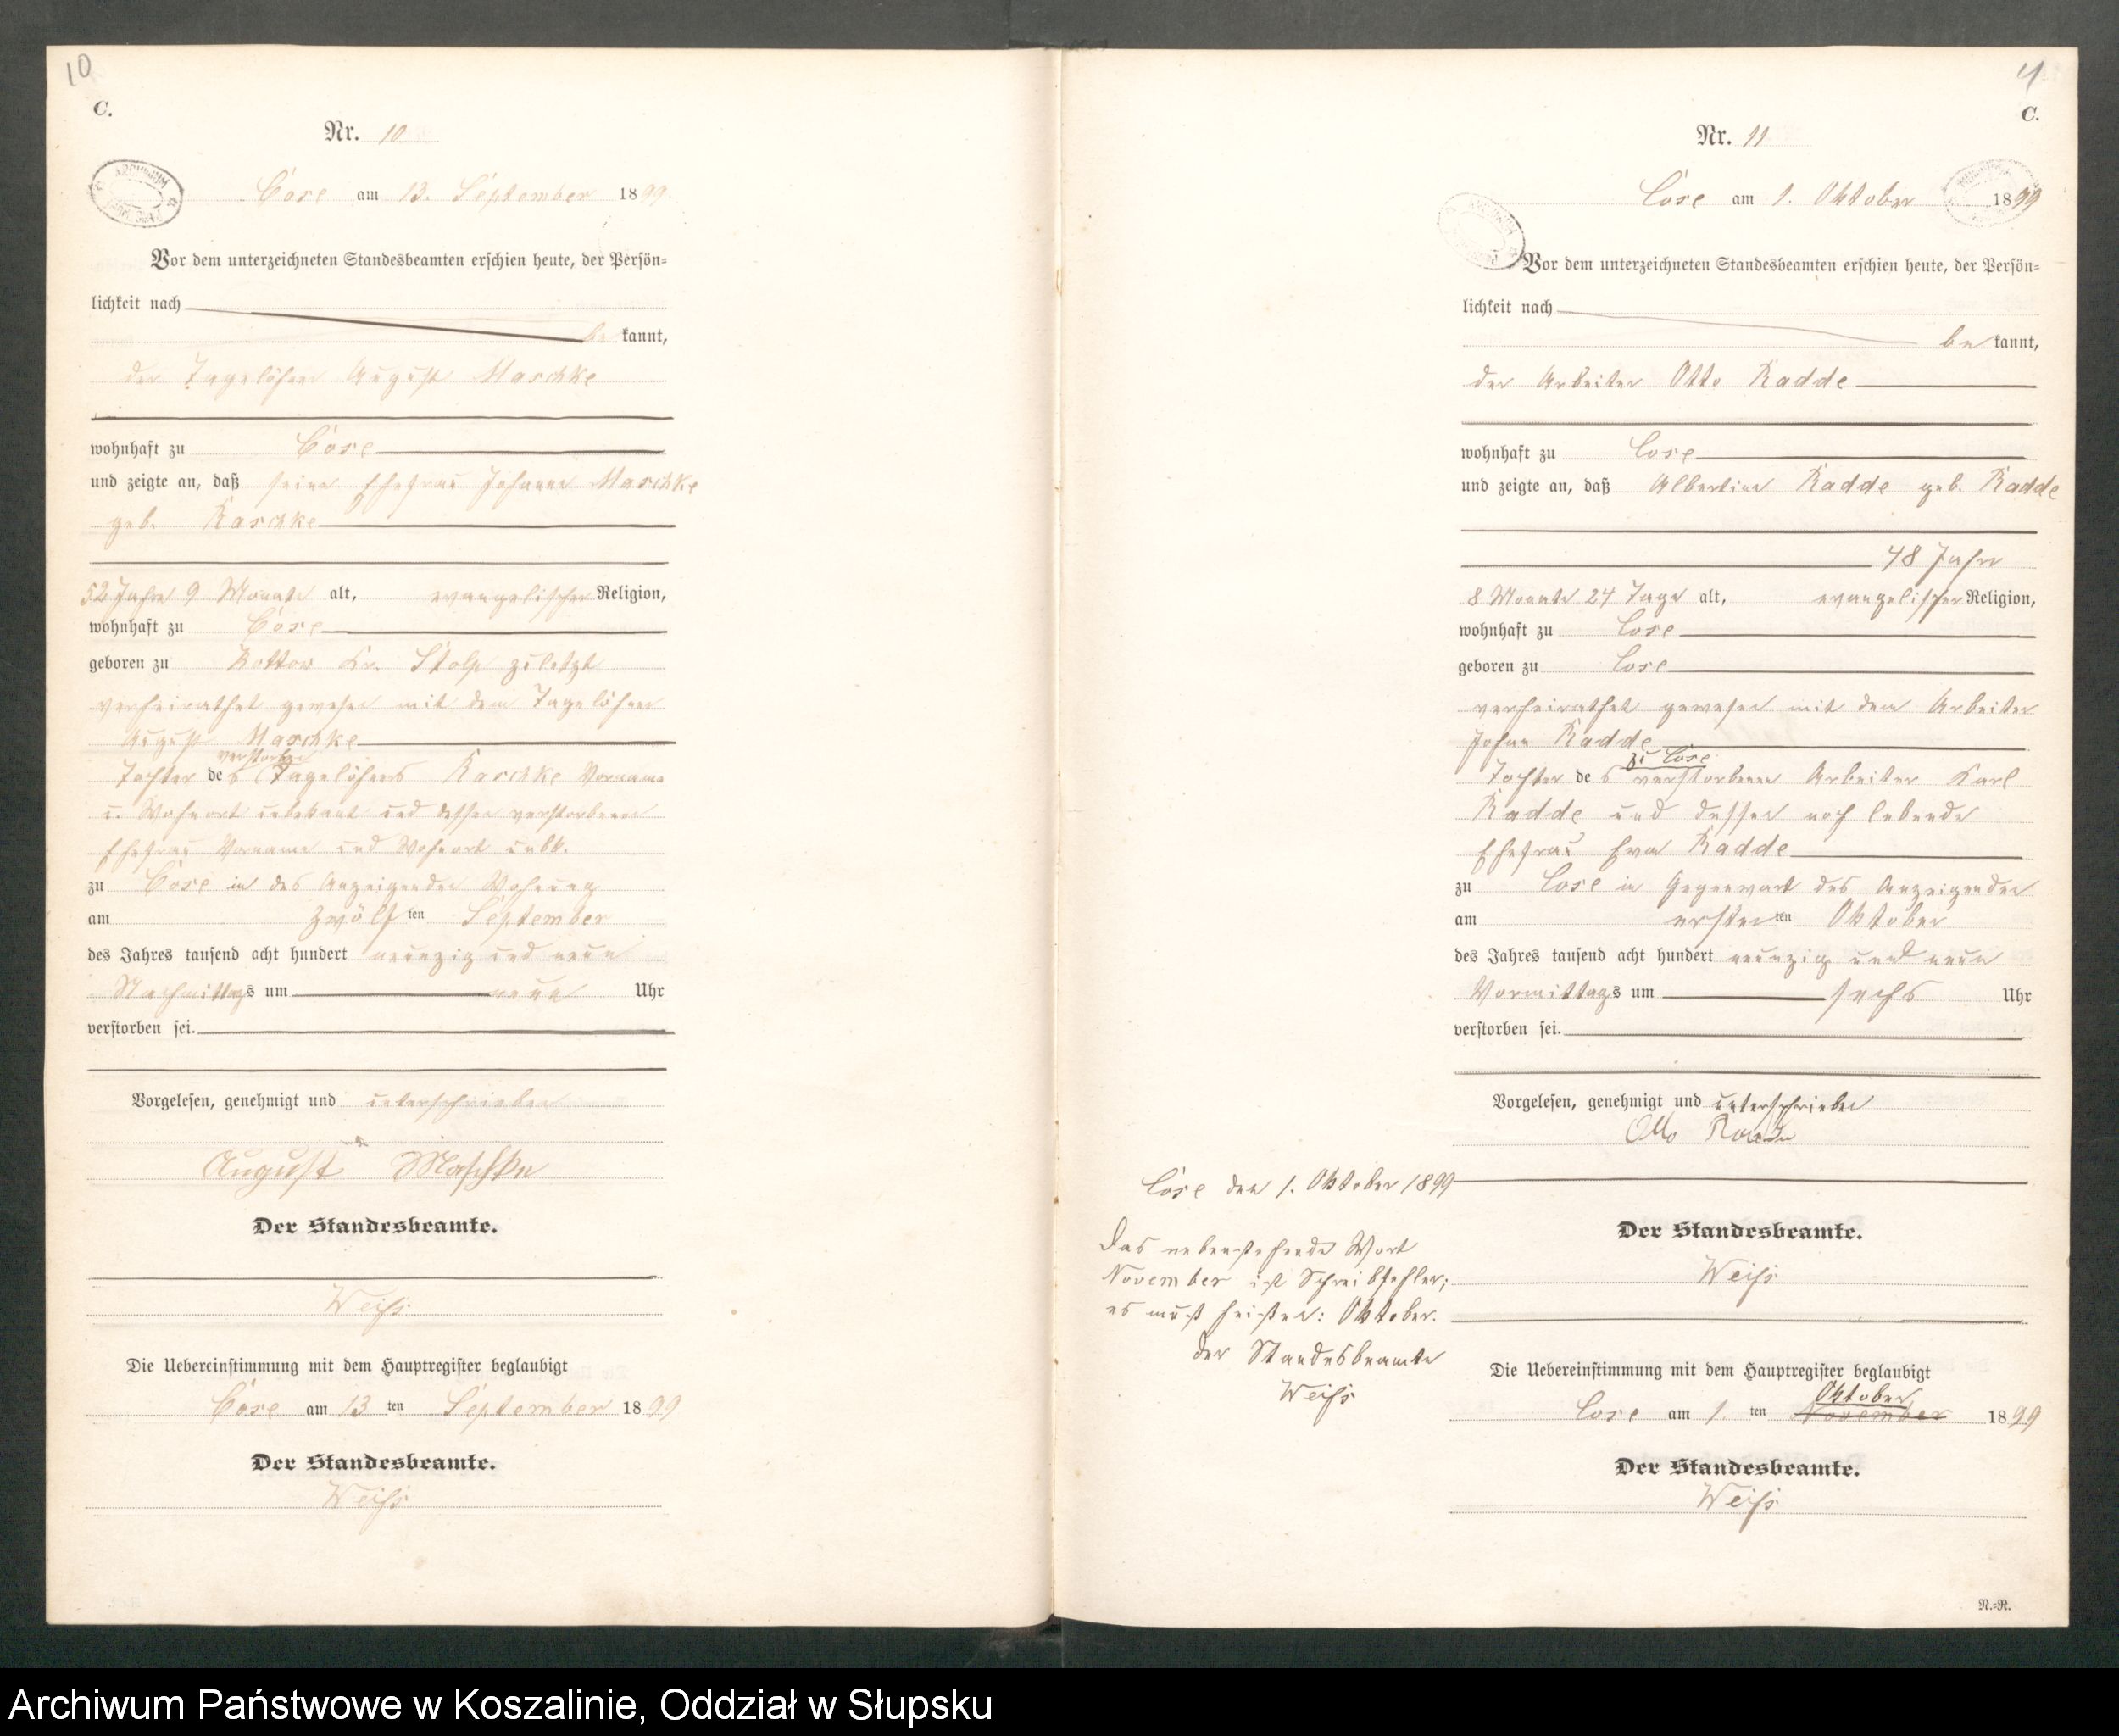 10
C.
Nr. 10
Cose am 13. September 1899
Vor dem unterzeichneten Standesbeamten erschien heute, der Persön=
lichkeit nach
be kannt,
der Tagelöhner August Maschke
wohnhaft zu Cose
und zeigte an, daß seine Ehefrau Johanne Maschke
geb. Raschke
52 Jahre 9 Monate alt, evangelischer Religion,
wohnhaft zu Cose
geboren zu Kr. Stolp zuletzt
verheirathet gewesen mit dem Tagelöhner
August Maschke
verstorben
Tochter des Tagelöhners Raschke Vorname
u. Wohnort unbekannt und dessen verstorbenen
Ehefrau Vorname und Wohnort unbk.
zu Cose in des Anzeigenden Wohnung
am zwölf ten September
des Jahres tausend acht hundert neunzig und neun
Nachmittags um neun Uhr
verstorben sei.
Vorgelesen, genehmigt und unterschrieben
August Maschke
Der Standesbeamte.
Weiß
Die Uebereinstimmung mit dem Hauptregister beglaubigt
Cose am 13 ten September 1899
Der Standesbeamte.
Weiß
C.
Nr. 11
Cose am 1. Oktober 1899
Vor dem unterzeichneten Standesbeamten erschien heute, der Persön=
lichkeit nach
be kannt,
der Arbeiter Otto Radde
wohnhaft zu Cose
und zeigte an, daß Albertine Radde geb. Radde
48 Jahr
8 Monate 24 Tage alt, evangelischer Religion,
wohnhaft zu Cose
geboren zu Cose
verheirathet gewesen mit dem Arbeiter
Johan Radde
zu Cose
Tochter des verstorbenen Arbeiter Karl
Radde und dessen noch lebende
Ehefrau Eva Radde
zu Cose in Gegenwart des Anzeigenden
am ersten ten Oktober
des Jahres tausend acht hundert neunzig und neun
Vormittags um sechs Uhr
verstorben sei.
Vorgelesen, genehmigt und unterschrieben
Otto Radde
Der Standesbeamte.
Weiß
Cose den 1. Oktober 1899
Das nebenstehende Wort
November ist Schreibfehler;
es muß heißen: Oktober.
der Standesbeamte
Weiß
Die Uebereinstimmung mit dem Hauptregister beglaubigt
Oktober
Cose am 1. ten November 1899
Der Standesbeamte.
Weiß
R.=R.
Archiwum Państwowe w Koszalinie, Oddział w Słupsku